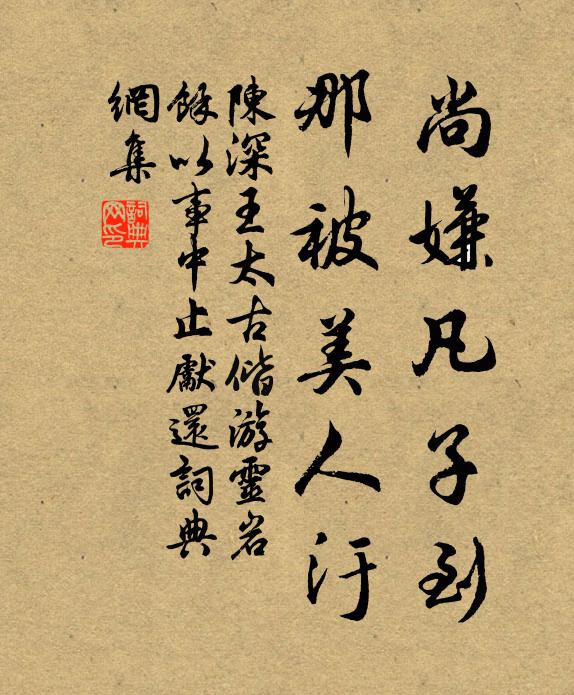 尚嫌凡子到
那被美人汙
陳深王太古偕游靈岩
餘以事中止獻還詞典
網集
詞典
网印